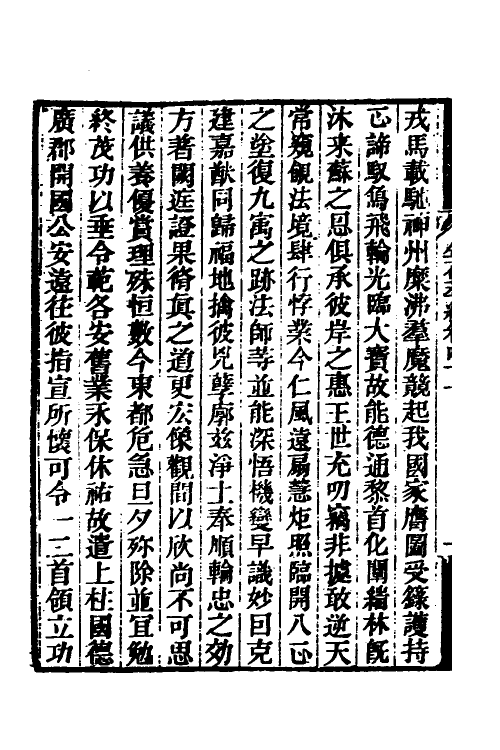 戎馬載馳神州糜沸羣魔競起我國家膺圖受籙護持
正諦馭鳥飛輪光臨大寶故能德通黎首化闡緇林旣
沐來蘇之恩俱承彼岸之惠王世充叨竊非據敢逆天
常窺覦法境肆行悖業今仁風遠扇慧炬照臨開八正
之塗復九寓之跡法師等並能深悟機變早識妙因克
建嘉猷同歸福地擒彼兇孽廓兹淨土奉順輸忠之効
方著闕庭證果脩眞之道更宏像觀聞以欣尚不可思
議供養優賞理殊恒數今東都危急旦夕殄除並宜勉
終茂功以垂令範各安舊業永保休祐故遣上柱國德
廣郡開國公安遠往彼指宣所懷可令一二首領立功